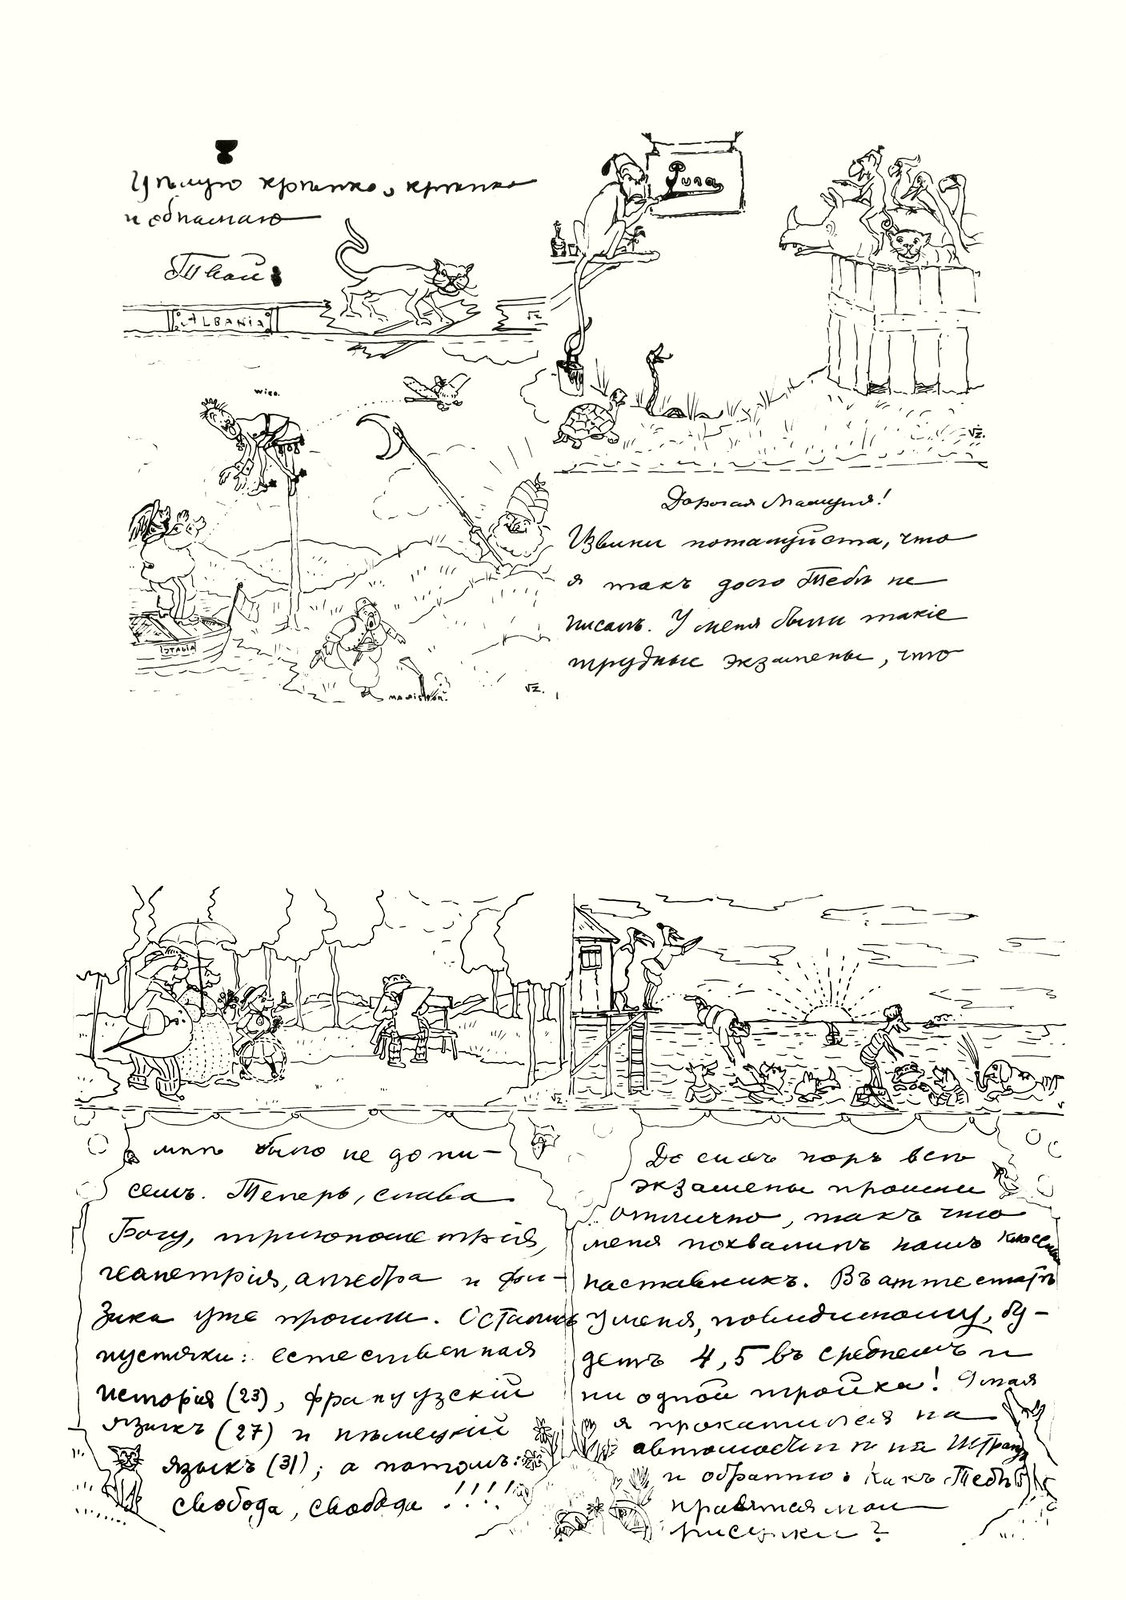 Рига
Дорогая Мамуся!
Извини пожалуйста, что
я такъ долго Тебѣ не
писалъ. У меня были такіе
трудные экзамены, что
мнѣ было не до пи-
семъ. Теперь, слава
Богу, тригонометрія,
геометрія, алгебра и фи-
зика уже прошли. Остались
пустяки: естественная
исторія (23), французскій
языкъ (27) и нѣмецкій
языкъ (31); а потомъ:
свобода, свобода !!!!
До сихъ поръ всѣ
экзамены прошли
отлично, такъ что
меня похвалилъ нашъ классный
наставникъ. Въ аттестатѣ
у меня, повидимому, бу-
детъ 4,5 въ среднемъ и
ни одной тройки! 9 мая
я прокатился на
автомобилѣ на Штранд
и обратно. Какъ Тебѣ
нравятся мои
рисунки?
Цѣлую крѣпко, крѣпко
и обнимаю
Твой
ALBANIA
wien.
ITALIA
VZ.
VZ.